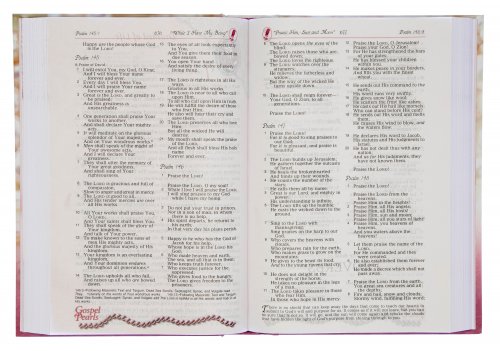 Psalm 145:1
630
"While I Have My Being"
Happy are the people whose God
is the LORD!
Psalm 145
A Praise of David.
I will extol You, my God, O King;
And I will bless Your name
forever and ever.
2 Every day I will bless You,
And I will praise Your name
forever and ever.
3 Great is the LORD, and greatly to
be praised;
And His greatness is
unsearchable.
4 One generation shall praise Your
works to another,
And shall declare Your mighty
acts.
5 I will meditate on the glorious
splendor of Your majesty,
And on Your wondrous works.
6 Men shall speak of the might of
Your awesome acts,
And I will declare Your
greatness.
7 They shall utter the memory of
Your great goodness,
And shall sing of Your
righteousness.
8 The LORD is gracious and full of
compassion,
Slow to anger and great in mercy.
9 The LORD is good to all,
And His tender mercies are over
all His works.
10 All Your works shall praise You,
O LORD,
And Your saints shall bless You.
11 They shall speak of the glory of
Your kingdom,
And talk of Your power,
12 To make known to the sons of
men His mighty acts,
And the glorious majesty of His
kingdom.
13 Your kingdom is an everlasting
kingdom,
And Your dominion endures
throughout all generations.
14 The LORD upholds all who fall,
And raises up all who are bowed
down.
15 The eyes of all look expectantly
to You,
And You give them their food in
due season.
16 You open Your hand
And satisfy the desire of every
living thing.
17 The LORD is righteous in all His
ways,
Gracious in all His works.
18 The LORD is near to all who call
upon Him,
To all who call upon Him in truth.
19 He will fulfill the desire of those
who fear Him;
He also will hear their cry and
save them.
20 The LORD preserves all who love
Him,
But all the wicked He will
destroy.
21 My mouth shall speak the praise
of the LORD,
And all flesh shall bless His holy
name
Forever and ever.
Psalm 146
Praise the LORD!
Praise the LORD, O my soul!
2 While I live I will praise the LORD;
I will sing praises to my God
while I have my being.
3 Do not put your trust in princes,
Nor in a son of man, in whom
there is no help.
4 His spirit departs, he returns to
his earth;
In that very day his plans perish.
5 Happy is he who has the God of
Jacob for his help,
Whose hope is in the LORD his
God,
6 Who made heaven and earth,
The sea, and all that is in them;
Who keeps truth forever,
7 Who executes justice for the
oppressed,
Who gives food to the hungry.
The LORD gives freedom to the
prisoners.
Gospel
Pearls
"Praise Him, Sun and Moon"
631
Psalm 148:8
8 The LORD opens the eyes of the
blind;
The LORD raises those who are
bowed down;
The LORD loves the righteous.
9 The LORD watches over the
strangers;
He relieves the fatherless and
widow;
But the way of the wicked He
turns upside down.
10 The LORD shall reign forever—
Your God, O Zion, to all
generations.
Praise the LORD!
Psalm 147
Praise the LORD!
For it is good to sing praises to
our God;
For it is pleasant, and praise is
beautiful.
2 The LORD builds up Jerusalem;
He gathers together the outcasts
of Israel.
3 He heals the brokenhearted
And binds up their wounds.
4 He counts the number of the
stars;
He calls them all by name.
5 Great is our Lord, and mighty in
power;
His understanding is infinite.
6 The LORD lifts up the humble;
He casts the wicked down to the
ground.
7 Sing to the LORD with
thanksgiving;
Sing praises on the harp to our
God,
8 Who covers the heavens with
clouds,
Who prepares rain for the earth,
Who makes grass to grow on the
mountains.
9 He gives to the beast its food,
And to the young ravens that cry.
10 He does not delight in the
strength of the horse;
He takes no pleasure in the legs
of a man.
11 The LORD takes pleasure in those
who fear Him,
In those who hope in His mercy.
12 Praise the LORD, O Jerusalem!
Praise your God, O Zion!
13 For He has strengthened the bars
of your gates;
He has blessed your children
within you.
14 He makes peace in your borders,
And fills you with the finest
wheat.
15 He sends out His command to the
earth;
His word runs very swiftly.
16 He gives snow like wool;
He scatters the frost like ashes;
17 He casts out His hail like morsels;
Who can stand before His cold?
18 He sends out His word and melts
them;
He causes His wind to blow, and
the waters flow.
19 He declares His word to Jacob,
His statutes and His judgments to
Israel.
20 He has not dealt thus with any
nation;
And as for His judgments, they
have not known them.
Praise the LORD!
Psalm 148
Praise the LORD!
Praise the LORD from the
heavens;
Praise Him in the heights!
2 Praise Him, all His angels;
Praise Him, all His hosts!
3 Praise Him, sun and moon;
Praise Him, all you stars of light!
4 Praise Him, you heavens of
heavens,
And you waters above the
heavens!
5 Let them praise the name of the
LORD,
For He commanded and they
were created.
6 He also established them forever
and ever;
He made a decree which shall not
pass away.
7 Praise the LORD from the earth,
You great sea creatures and all
the depths;
8 Fire and hail, snow and clouds;
Stormy wind, fulfilling His word;